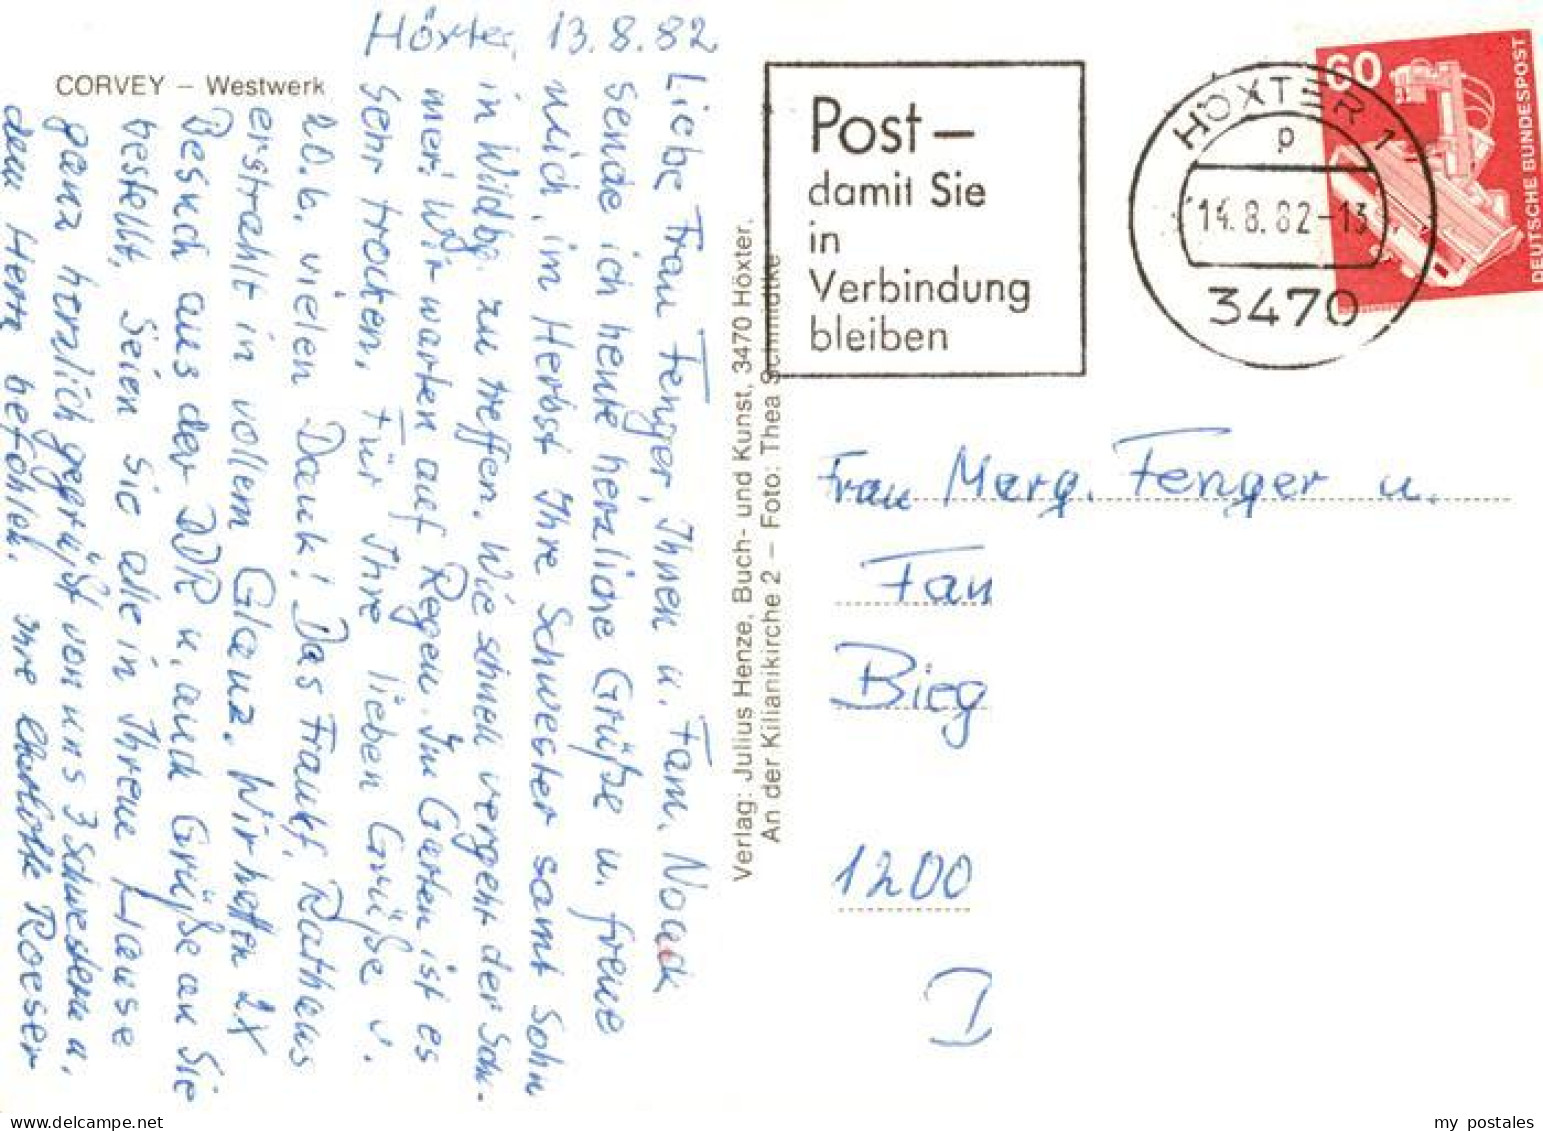 CORVEY – Westwerk
Höxter, 13.8.82
Liebe Frau Fenger, Ihnen u. Fam. Noack
sende ich heute herzliche Grüße u. freue
mich, im Herbst Ihre Schwester samt Sohn
in Wildbg. zu treffen. Wie schnell vergeht der Som-
mer! Wir warten auf Regen. Im Garten ist es
sehr trocken. Für Ihre lieben Grüße v.
20.6. vielen Dank! Das Frankf. Rathaus
erstrahlt in vollem Glanz. Wir hatten 2x
Besuch aus der DDR u. auch Grüße an Sie
bestellt. Seien Sie alle in Ihrem Hause
ganz herzlich gegrüßt von uns 3 Schwestern u.
dem Herrn befohlen. Ihre Charlotte Roeser
Verlag: Julius Henze, Buch- und Kunst, 3470 Höxter,
An der Kilianikirche 2 – Foto: Thea Schmidtke
Post –
damit Sie
in
Verbindung
bleiben
HÖXTER 1
p
14.8.82-13
3470
60
DEUTSCHE BUNDESPOST
Frau Marg. Fenger u.
Fam
Bieg
1200
my postales